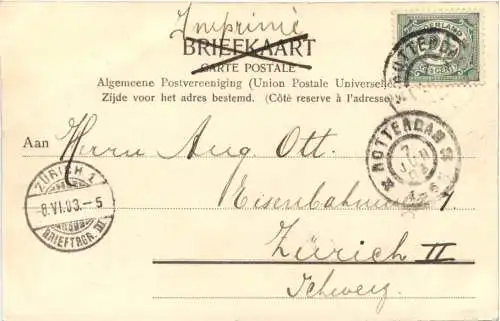 Imprimé
BRIEFKAART
CARTE POSTALE
Algemeene Postvereeniging (Union Postale Universelle
Zijde voor het adres bestemd. (Côté reserve à l'adresse)
NEDERLAND
ROTTERDAM
Aan Herrn Aug. Ott.
ROTTERDAM
7 JUN 03
ZÜRICH 1
8.VI.03.-5
BRIEFTRGR. III
Eisenbahnweg
Zürich II
Schweiz